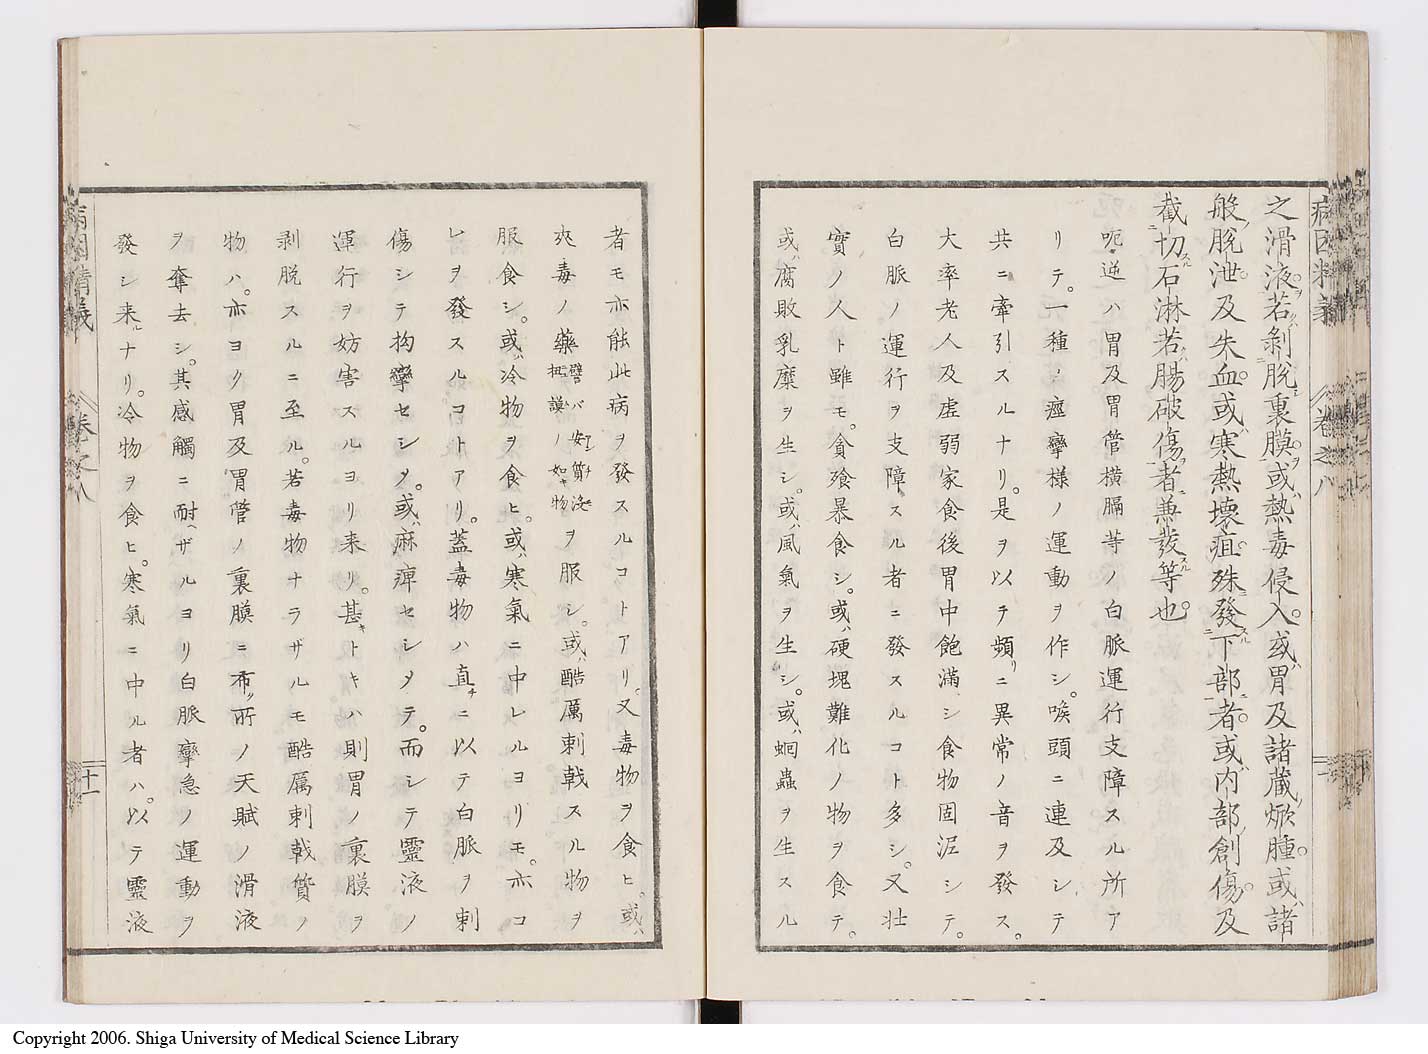 病因精義 卷之八
之滑液ヲ若クハ剝脫裏膜ヲ或ハ熱毒侵入或ハ胃及諸蔵焮腫或ハ諸
般脫泄及失血或ハ寒熱壊疽殊發スル下部ニ者或ハ内部ノ創傷及
截切スル石淋若ハ腸破傷ノ者ニ兼發スル等也
呃逆ハ胃及胃管橫膈等ノ白脈運行支障スル所ア
リテ。一種ノ痙攣様ノ運動ヲ作シ。喉頭ニ連及シテ
共ニ牽引スルナリ。是ヲ以テ頻リニ異常ノ音ヲ發ス。
大率老人及虚弱家食後胃中飽滿シ食物固泥シテ。
白脈ノ運行ヲ支障スル者ニ發スルコト多シ。又壮
實ノ人ト雖モ。貪飱暴食シ。或ハ硬塊難化ノ物ヲ食テ。
或ハ腐敗乳糜ヲ生シ。或ハ風氣ヲ生シ。或ハ蛔蟲ヲ生スル
者モ亦能此病ヲ發スルコトアリ。又毒物ヲ食ヒ。或ハ
爽毒ノ藥 譬バ安質没 扭謨ノ如キ物 ヲ服シ。或ハ酷厲刺戟スル物ヲ
服食シ。或ハ冷物ヲ食ヒ。或ハ寒氣ニ中レルヨリモ。亦コ
レヲ發スルコトアリ。蓋毒物ハ直チニ以テ白脈ヲ刺
傷シテ拘攣セシメ。或ハ麻痺セシメテ。而シテ靈液ノ
運行ヲ妨害スルヨリ来リ。甚キトキハ則胃ノ裏膜ヲ
剥脫スルニ至ル。若毒物ナラザルモ酷厲刺戟質ノ
物ハ。亦ヨク胃及胃管ノ裏膜ニ布ク所ノ天賦ノ滑液
ヲ奪去シ。其感觸ニ耐ヘザルヨリ白脈攣急ノ運動ヲ
發シ来ルナリ。冷物ヲ食ヒ。寒氣ニ中ル者ハ。以テ靈液
病因精義 卷之八 十一
Copyright 2006. Shiga University of Medical Science Library